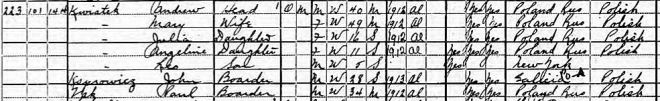 223 101 144 Kwiatek Andrew Head 1 O M M W 40 M 1912 Al Yes Yes Poland Rus Polish
— Mary Wife F W 49 M 1912 Al Yes Yes Poland Rus Polish
— Julia Daughter F W 16 S 1912 Al Yes Yes Poland Rus Polish
— Angeline Daughter F W 11 S 1912 Al Yes Yes Yes Poland Rus Polish
— Leo Son M W 5 S Yes New York
John Boarder M W 28 S 1913 Al Yes Yes Galicia Polish
Paul Boarder M W 34 M 1912 Al Yes Yes Poland Rus Polish